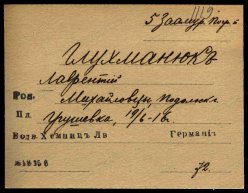 5 Заамур.
Глухманюкъ
Лаврентій
Род. Михайловичъ, Подольск.
Пл. Грушевка, 19/6-16.
Водв. Хемницъ Ла Германі
72.